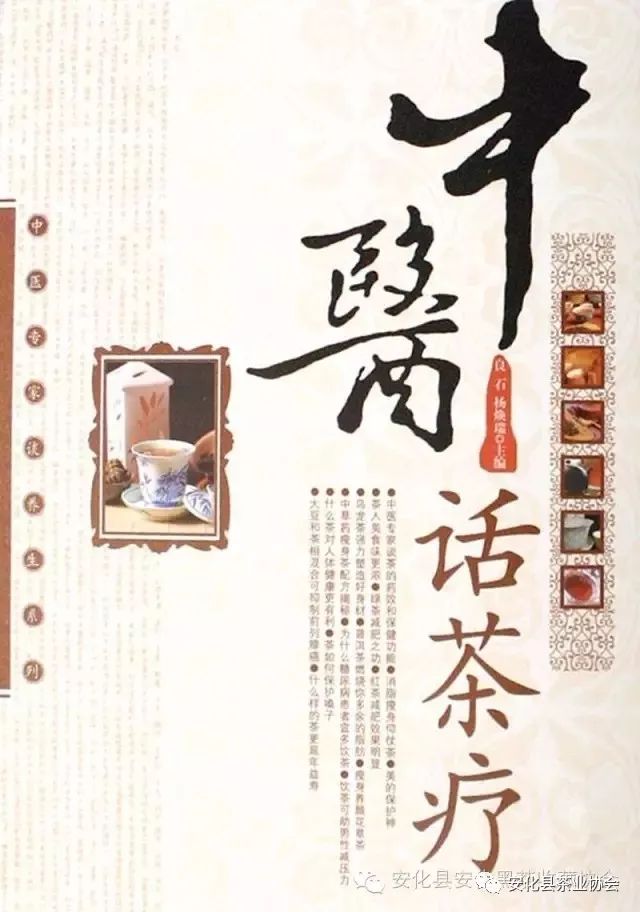 中醫
话茶疗
良石 杨焕瑞◎主编
中医专家谈养生系列
●中医专家谈茶的药效和保健功能●消脂瘦身仰仗茶●美的保护神
●茶人美食味更浓●绿茶减肥之功●红茶减肥效果明显
●乌龙茶强力塑造好身材●普洱茶燃烧你多余的脂肪●瘦身养颜花草茶
●中草药瘦身茶配方揭秘●为什么糖尿病患者宜多饮茶●饮茶可助男性减压力
●什么茶对人体健康更有利●茶如何保护嗓子
●大豆和茶相混合可抑制前列腺癌●什么样的茶更延年益寿
安化县茶业协会